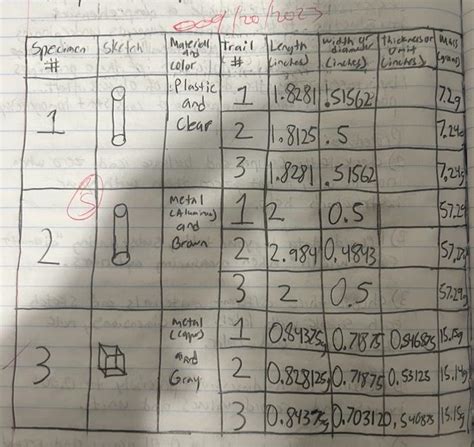 09/20/2023
Specimen # Sketch Material and color Trail # Length (inches) width or diameter (inches) Thickness or (inches) Mass (grams)
1 Plastic and Clear 1 1.8281 .51562 7.2g
2 1.8125 .5 7.24g
3 1.8281 .51562 7.24g
5
2 Metal and Brown 1 2 0.5 57.29
2 2.984 0.4843
3 2 0.5 57.29
3 Metal and Gray 1 0.84375 0.71875 0.546875 15.15g
2 0.828125 0.71875 0.53125 15.14g
3 0.84375 0.70312 15.15g